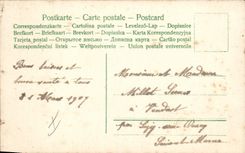 Postkarte – Carte postale – Postcard
Correspondenzkarte – Cartolina postale – Levelező-Lap – Dopisnice
Brefkort – Briefkaart – Brevkort – Dopisnica – Karta Korrespondencyjna
Tarjeta postal – Открытое письмо – Dopisna – Cartão postal
Korespondenční lístek – Weltpostverein – Union postale universelle
Bons baisers et
bonne santé à tous
1907
Monsieur et Madame
Millot
à
par Lizy-sur-Ourcq
Seine-et-Marne